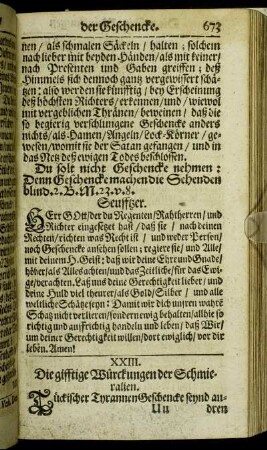 der Geschencke. 673
nen/ als schmalen Säckeln/ halten: solchem
nach lieber mit beyden Händen/ als mit keiner
nach Presenten und Gaben greiffen; deß
Himmels sich dennoch gantz vergewissert schä-
tzen: also werden sie künfftig/ bey Erscheinung
deß höchsten Richters/ erkennen/ und/ wiewol
mit vergeblichen Thränen/ beweinen/ daß die
so begierig verschlungene Geschencke anders
nichts/ als Hamen/ Angeln/ Lock-Körner/ ge-
wesen/ womit sie der Satan gefangen/ und in
das Netz deß ewigen Todes beschlossen.
Du solt nicht Geschencke nehmen:
Denn Geschencke machen die Sehenden
blind. 2. B. M. 23. v. 8.
Seufftzer.
HErr Gott/ der du Regenten/ Rahtherrn/ und
Richter eingesetzet hast/ daß sie/ nach deinen
Rechten/ richten was Recht ist/ und weder Person/
noch Geschencke ansehen sollen: regiere sie/ und Alle/
mit deinem H. Geist; daß wir deine Ehre und Gnade/
höher/ als Alles achten/ und das Zeitliche/ für das Ewi-
ge/ verachten. Laß uns deine Gerechtigkeit lieber/ und
deine Huld viel theurer/ als Gold/ Silber/ und alle
weltliche Schätze seyn: Damit wir dich unsren wahrē
Schatz nicht verlieren/ sondern ewig behalten/ allhie so
richtig und auffrichtig handeln und leben/ daß Wir/
um deiner Gerechtigkeit willen/ dort ewiglich/ vor dir
leben. Amen!
XXIII.
Die gifftige Würckungen der Schmie-
ralien.
Tückischer Tyrannen Geschencke seynd an-
Uu dren